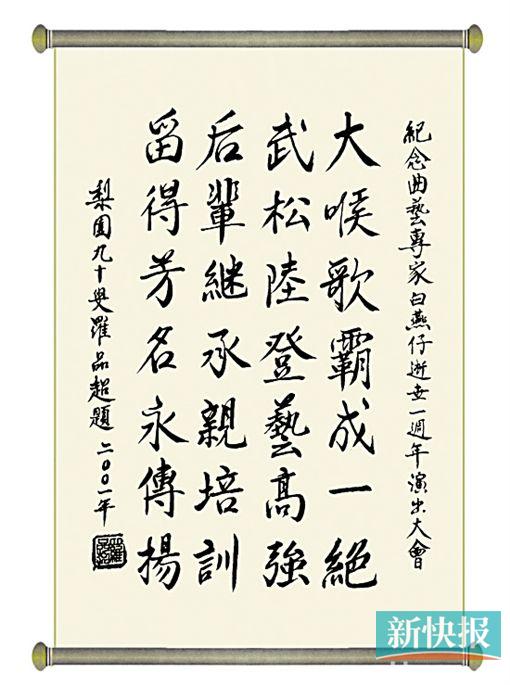 紀念曲藝專家白燕仔逝世一週年演出大會
大喉歌霸成一絕
武松陸登藝高強
后輩継承親培訓
留得芳名永傳揚
梨園九十叟羅品超題 二〇〇一年
新快报